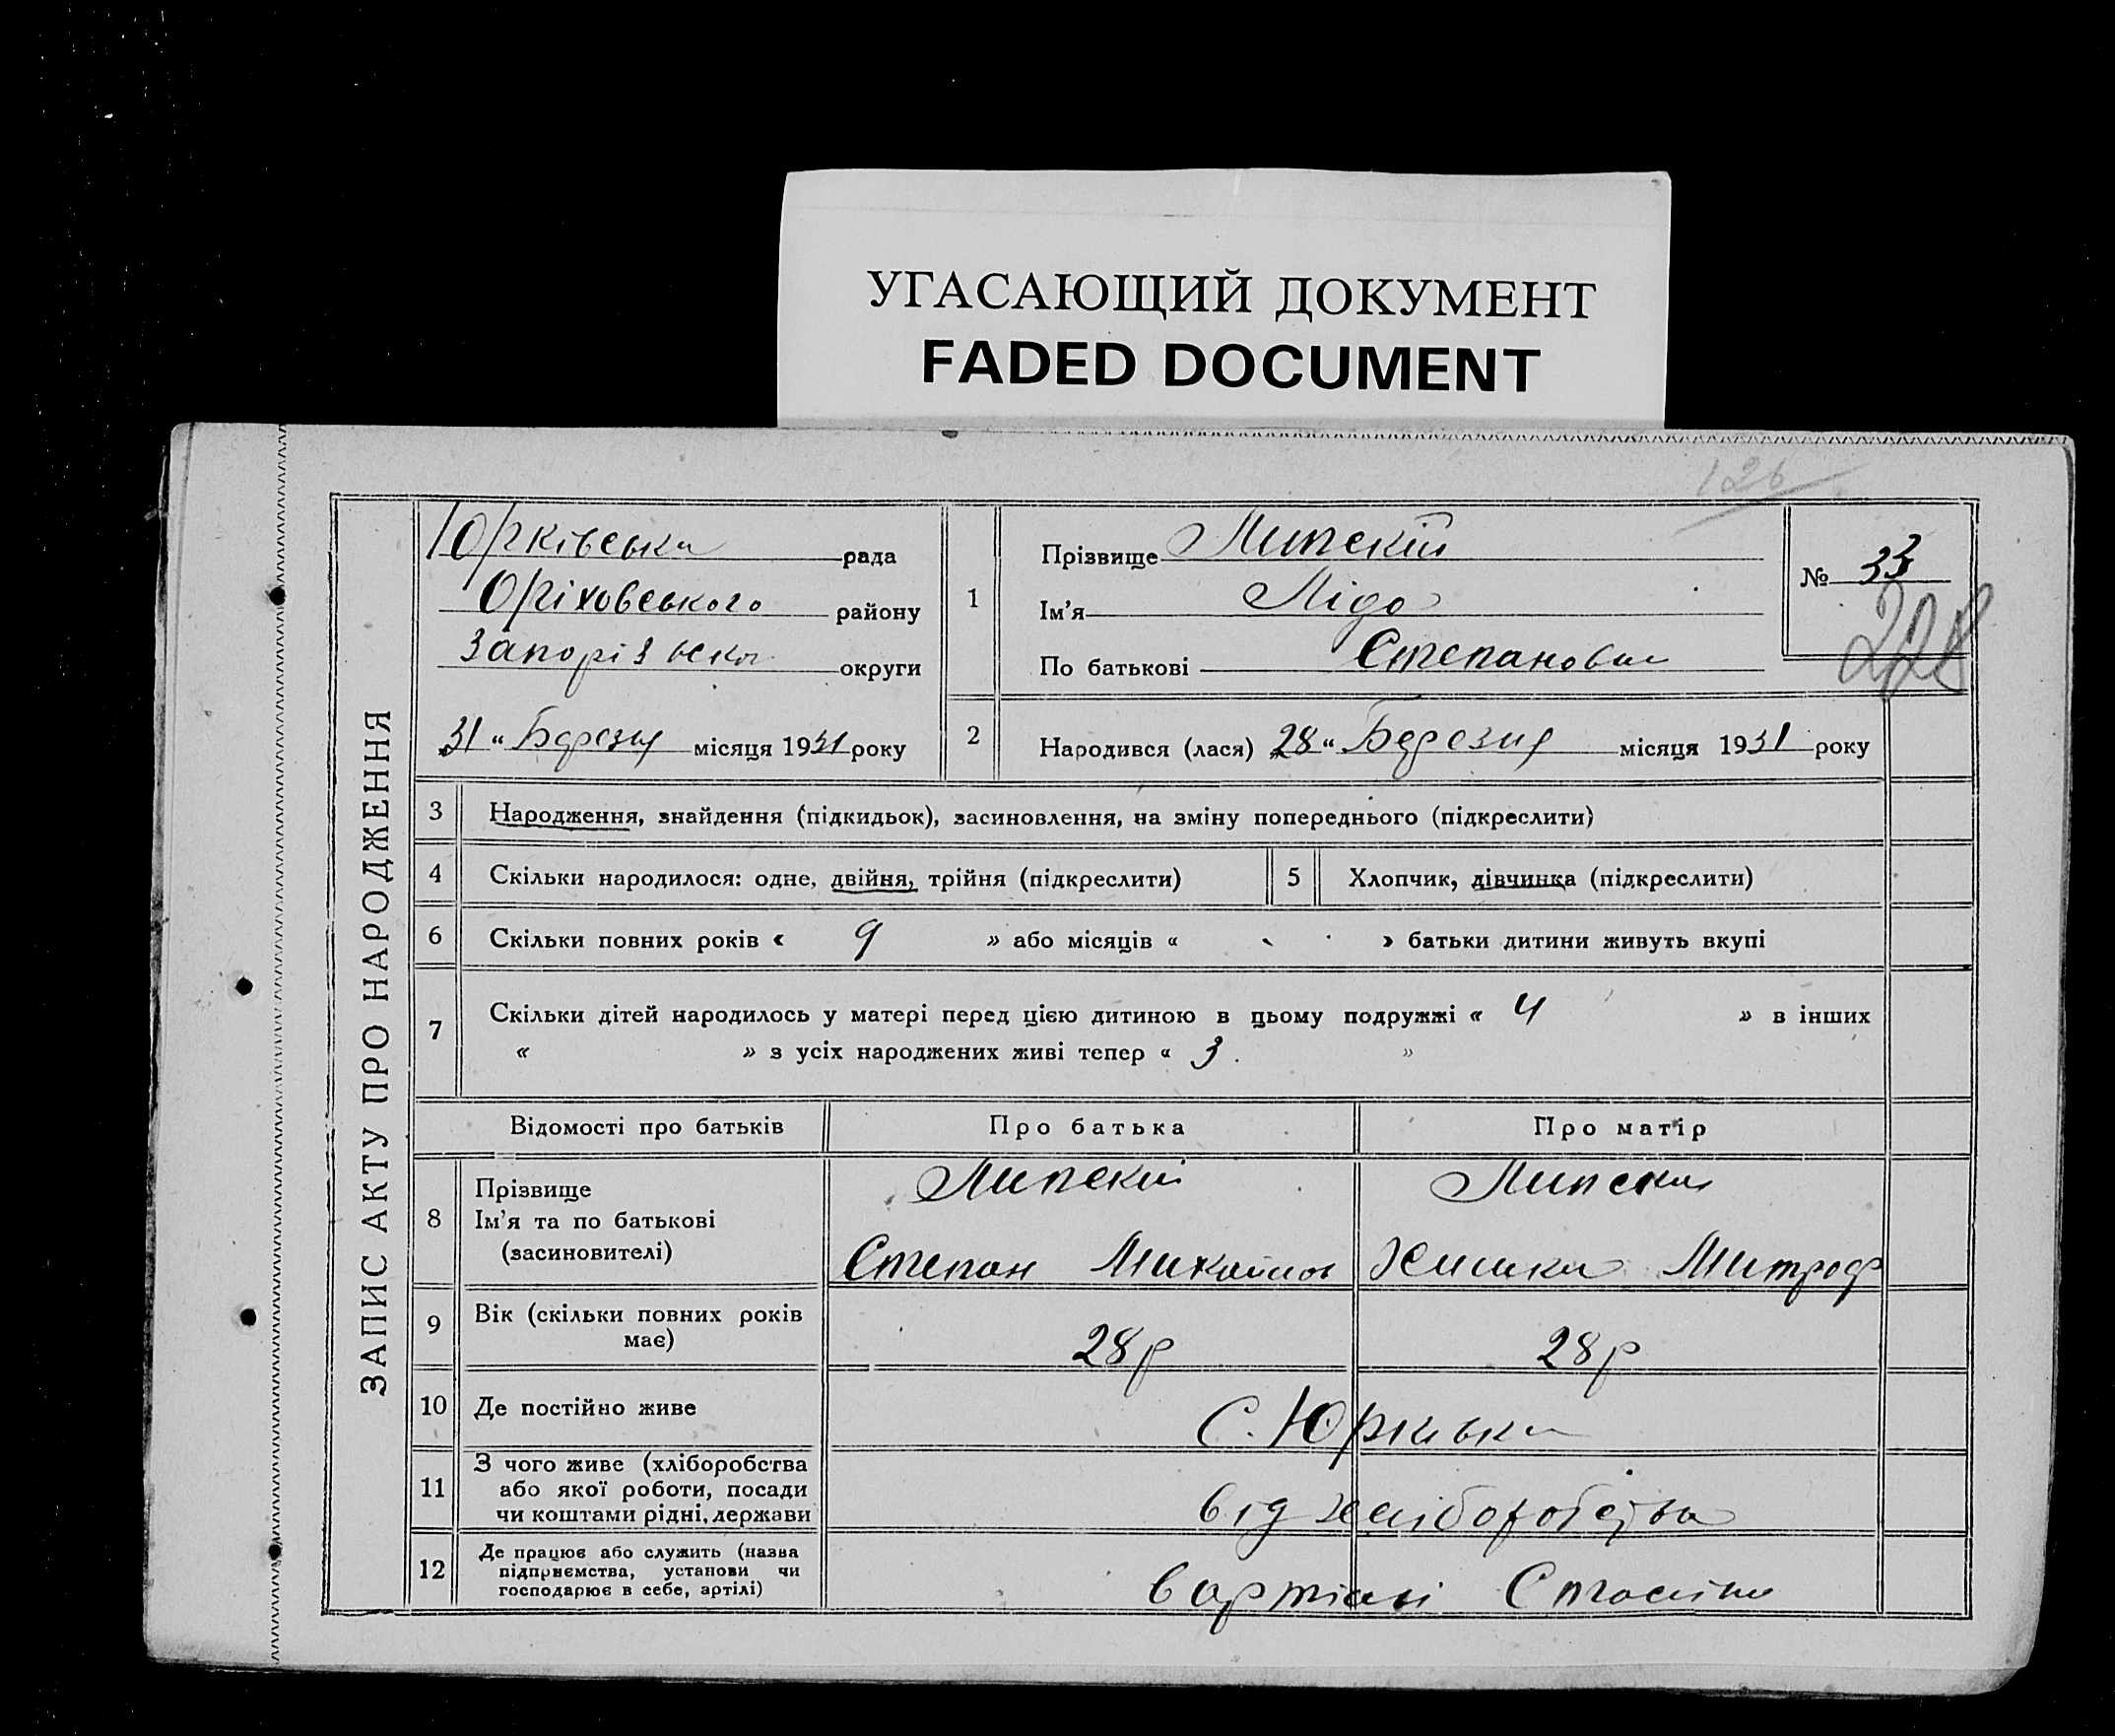 УГАСАЮЩИЙ ДОКУМЕНТ
FADED DOCUMENT
126
ЗАПИС АКТУ ПРО НАРОДЖЕННЯ
Юрківська рада
Оріховського району
Запорізька округи
31 " Березня місяця 1931 року
1
Прізвище Липскій
Ім'я Ліда
По батькові Степановна
№ 33
228
2 Народився (лася) 28 " Березня місяця 1931 року
3 Народження, знайдення (підкидьок), засиновлення, на зміну попереднього (підкреслити)
4 Скільки народилося: одне, двійня, трійня (підкреслити) 5 Хлопчик, дівчинка (підкреслити)
6 Скільки повних років « 9 » або місяців « » батьки дитини живуть вкупі
7 Скільки дітей народилось у матері перед цією дитиною в цьому подружжі « 4 » в інших
« » з усіх народжених живі тепер « 3 . »
Відомості про батьків Про батька Про матір
8 Прізвище Липскій
Ім'я та по батькові
(засиновителі) Степан Михайлов Митроф
9 Вік (скільки повних років має) 28 р 28 р
10 Де постійно живе С. Юрківка
11 З чого живе (хліборобства
або якої роботи, посади
чи коштами рідні, держави від хліборобства
12 Де працює або служить (назва
підприємства, установи чи
господарює в себе, артілі) в артілі Сталіна